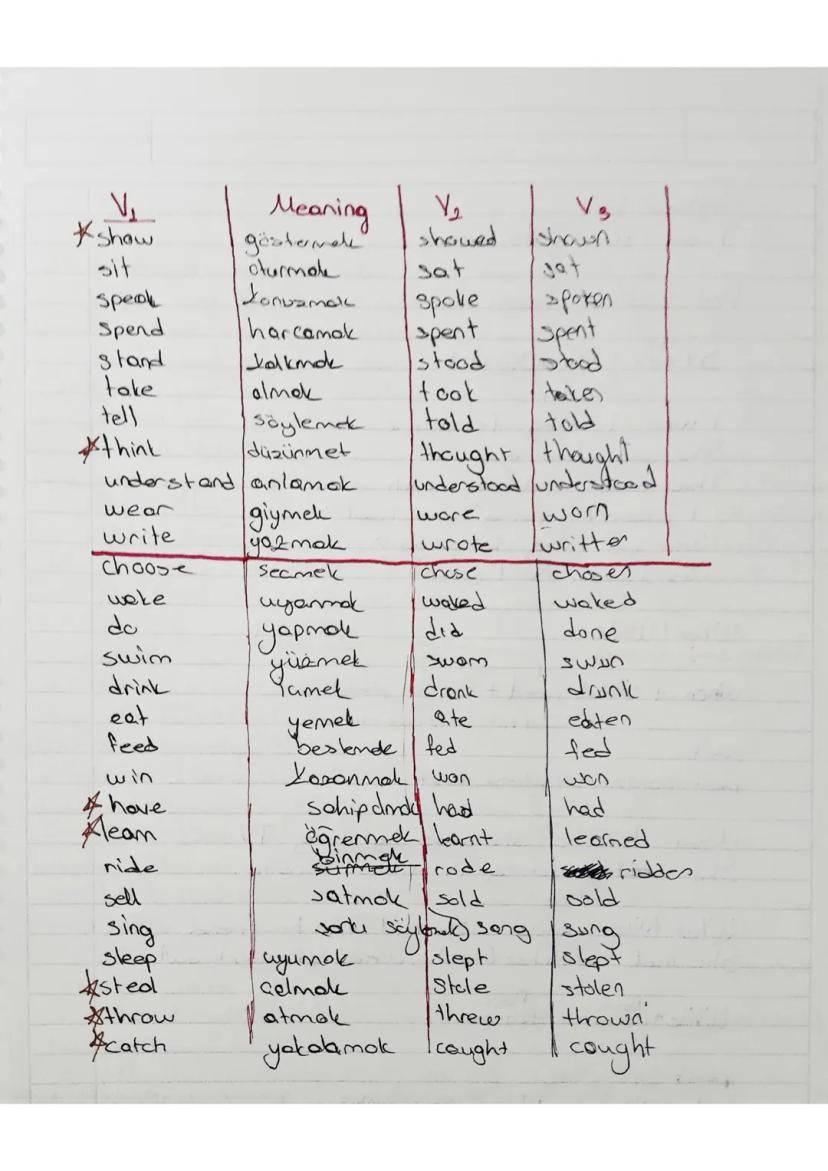 V1 Meaning V2 V3
show göstermek showed shown
sit oturmak sat sat
speak konuzmak spoke spoken
spend harcamak spent spent
stand kalkmak stood stood
take almak took taken
tell söylemek told told
think düzünmet thought thought
understand anlamak understood understood
wear giymek wore worn
write yazmak wrote written
choose secmek chose chosen
wake uyanmak waked waked
do yapmak did done
swim yüzmek swam swun
drink icmek drank drunk
eat yemek ate eaten
feed beslemde fed fed
win kazanmak won won
have sahip olmak had had
learn öğrenmek learnt learned
ride binmek sürmek rode ridden
sell satmak sold sold
sing sarkı söylemek sang sung
sleep uyumak slept slept
steal calmak stole stolen
throw atmak threw thrown
catch yakalamak caught cought